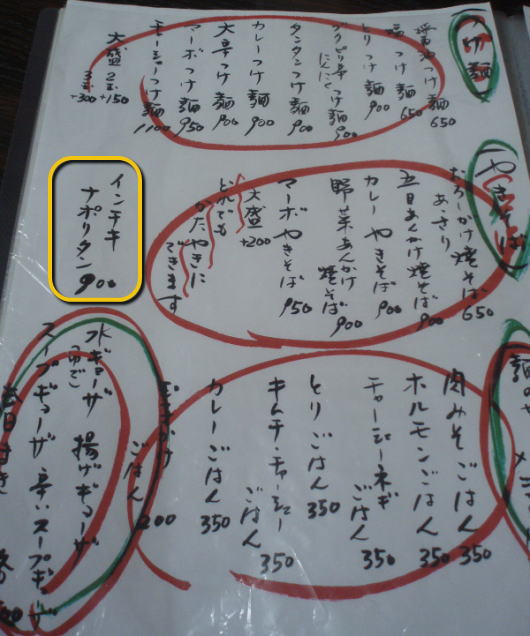 つけ麺
醤油つけ麺 650
塩つけ麺 650
とりつけ麺 900
にんにく つけ麺 900
タンタンつけ麺 900
カレーつけ麺 900
大辛つけ麺 900
マーボつけ麺 950
モーシャーつけ麺 1100
大盛 2玉+150
3玉+300
やきそば
おろしかけ焼そば 650
あっさり
五目あんかけ焼そば 900
カレーやきそば 900
野菜あんかけ焼そば 900
マーボやきそば 950
大盛+200
どれでも
かたやきに
できます
インチキ
ナポリタン 900
肉みそごはん 350
ホルモンごはん 350
チャーシューネギ
ごはん 350
とりごはん 350
キムチ・チャーシュー
ごはん 350
カレーごはん 350
ごはん 200
水ギョーザ 揚げギョーザ
(ゆで)
スープギョーザ 辛いスープギョーザ